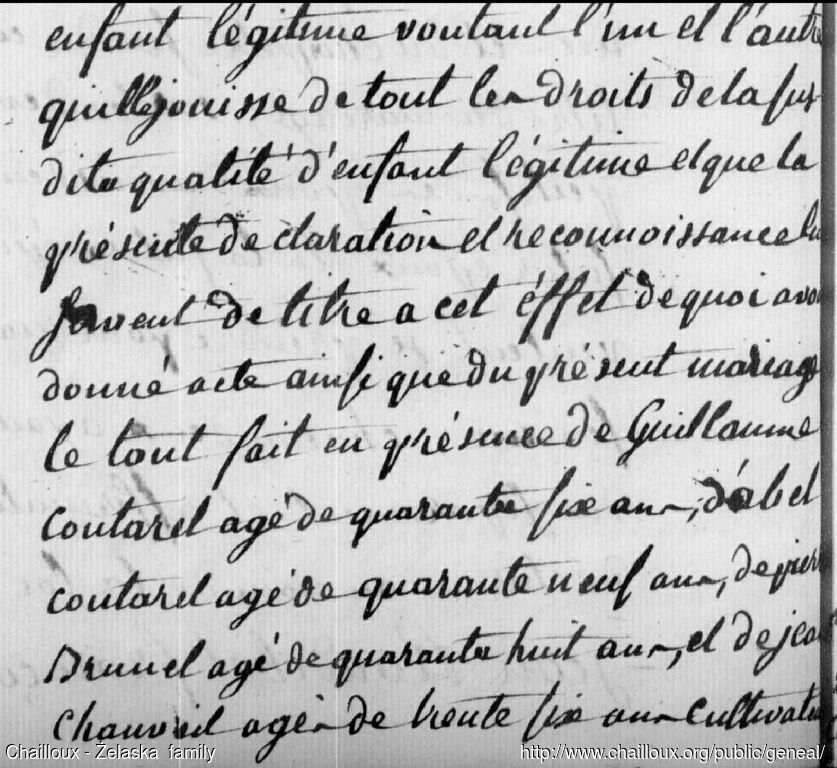 enfant légitime voulant l'un et l'autre
quillejouisse de tout les droits de la sus
dite qualité d'enfant légitime et que la
présente declaration et reconnoissance lui
servent de titre a cet éffet de quoi avons
donné acte ainsi que du présent mariage
le tout fait en présence de Guillaume
coutarel agé de quarante six ans, d'abel
coutarel agé de quarante neuf ans, de pierre
Brunel agé de quarante huit ans, et de jean
chauveil agés de trente six ans cultivateurs
Chailloux - Żelaska family
http://www.chailloux.org/public/geneal/